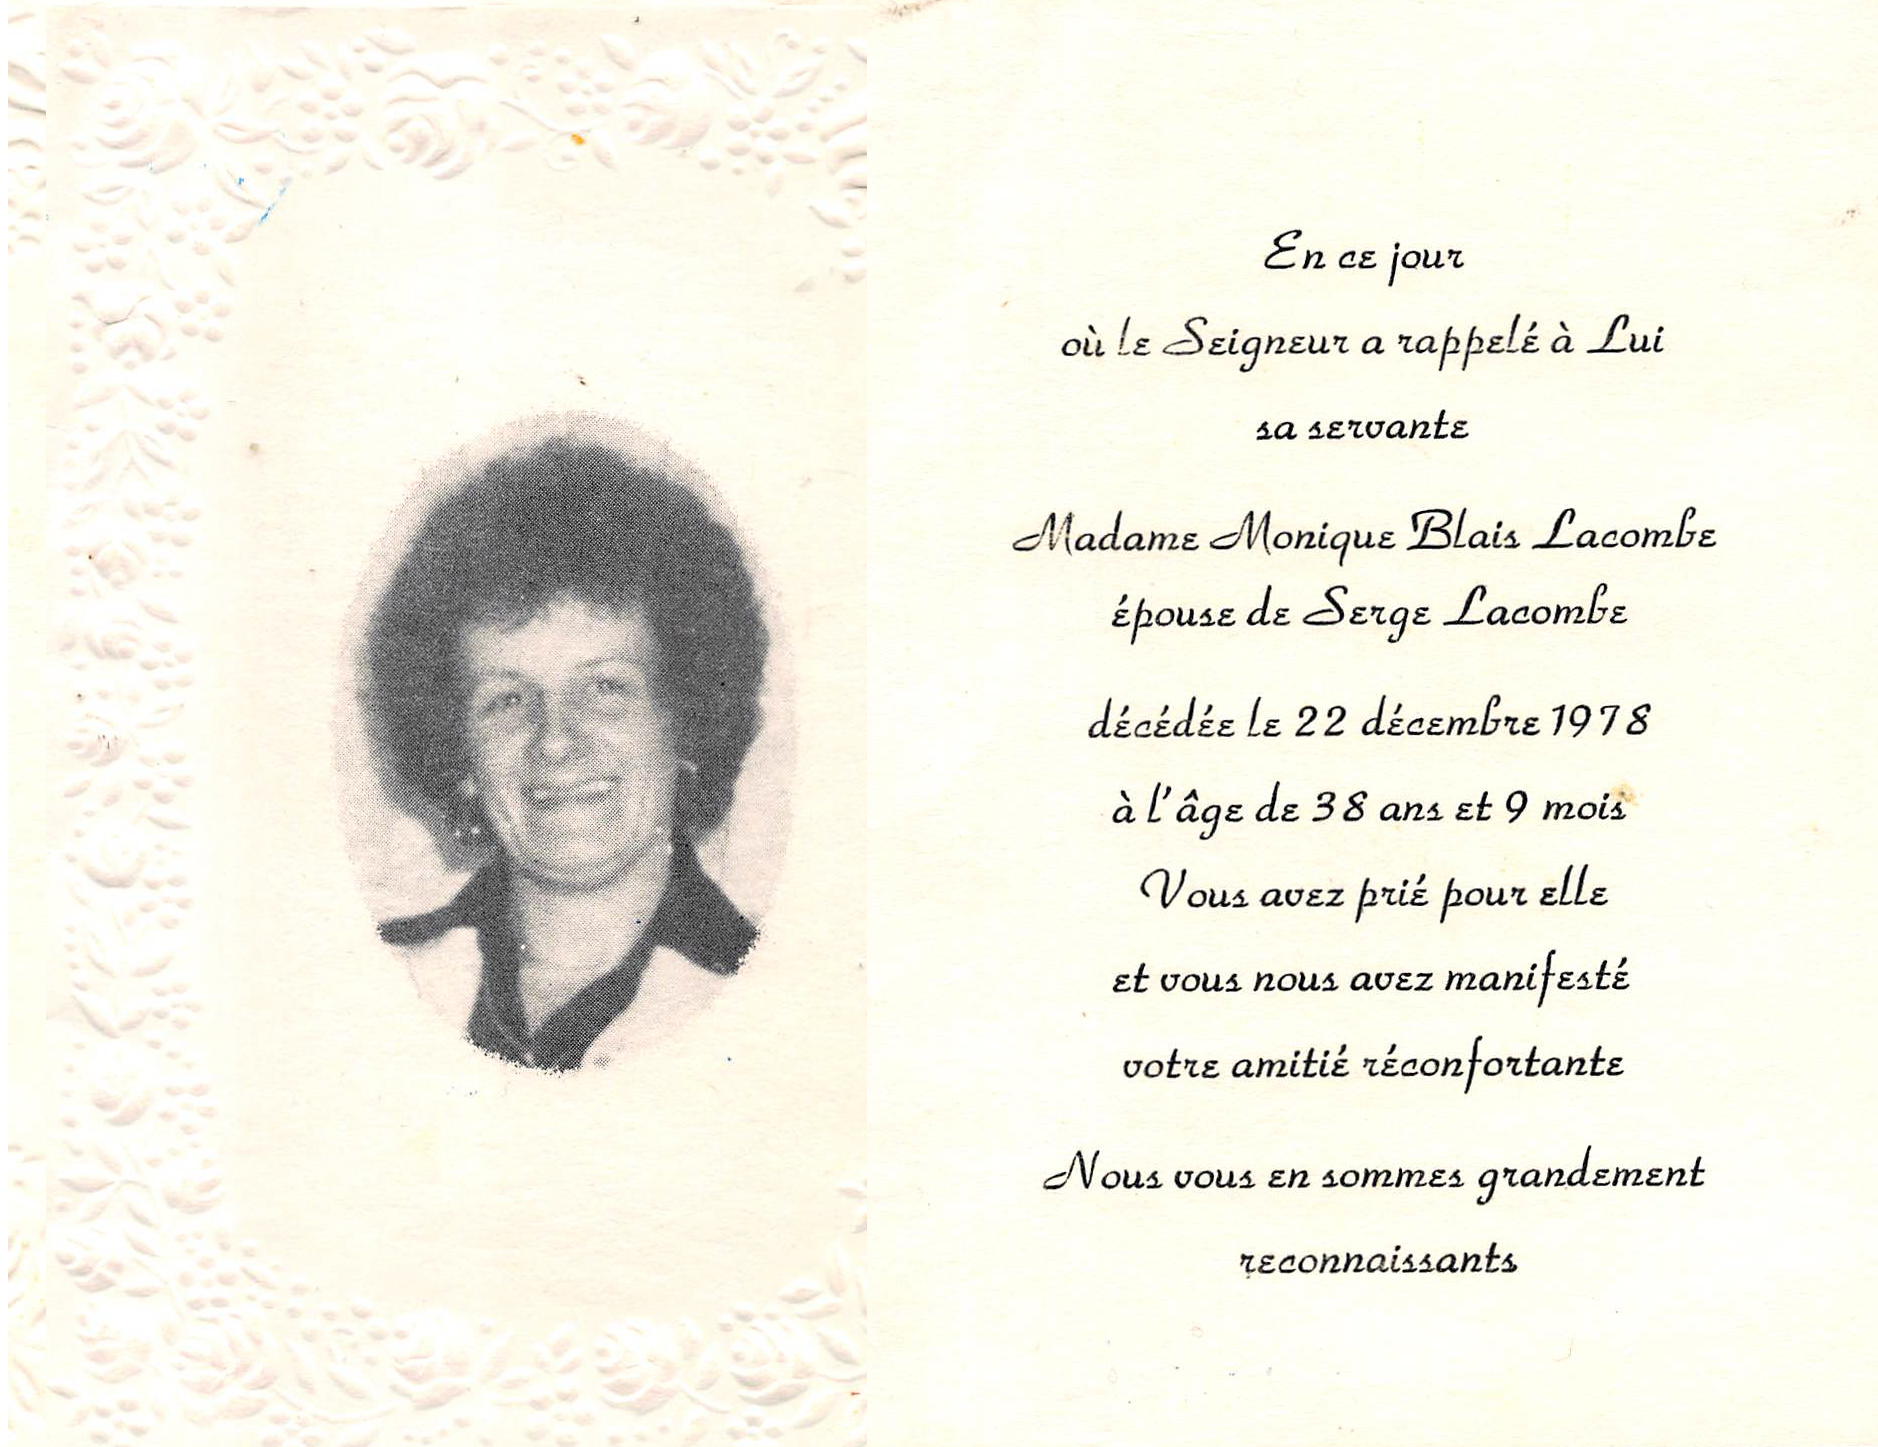 En ce jour
où le Seigneur a rappelé à Lui
sa servante
Madame Monique Blais Lacombe
épouse de Serge Lacombe
décédée le 22 décembre 1978
à l'âge de 38 ans et 9 mois
Vous avez prié pour elle
et vous nous avez manifesté
votre amitié réconfortante
Nous vous en sommes grandement
reconnaissants